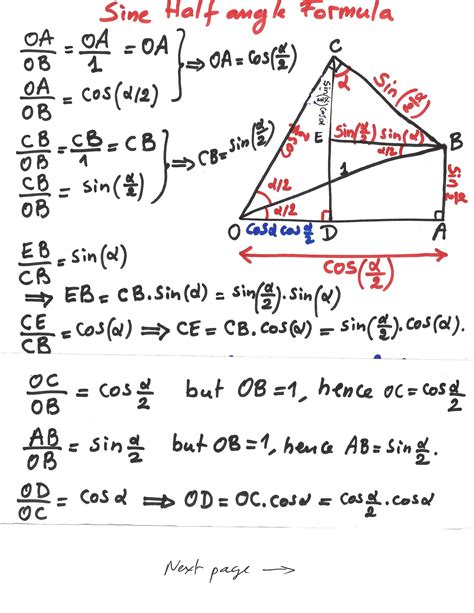 Sine Half angle Formula
OA/OB = OA/1 = OA
OA/OB = cos(α/2)
⇒ OA = cos(α/2)
CB/OB = CB/1 = CB
CB/OB = sin(α/2)
⇒ CB = sin(α/2)
C
α
sin(α/2)
sin(α/2)cosα
cos(α/2)
E
sin(α/2) sin(α)
B
α/2
1
sin α/2
α/2
α/2
O
D
A
cosα cos α/2
cos(α/2)
EB/CB = sin(α)
⇒ EB = CB.sin(α) = sin(α/2).sin(α)
CE/CB = cos(α) ⇒ CE = CB.cos(α) = sin(α/2).cos(α).
OC/OB = cos α/2 but OB=1, hence OC=cos α/2
AB/OB = sin α/2 but OB=1, hence AB=sin α/2.
OD/OC = cosα ⇒ OD=OC.cosα = cos α/2.cosα
Next page →